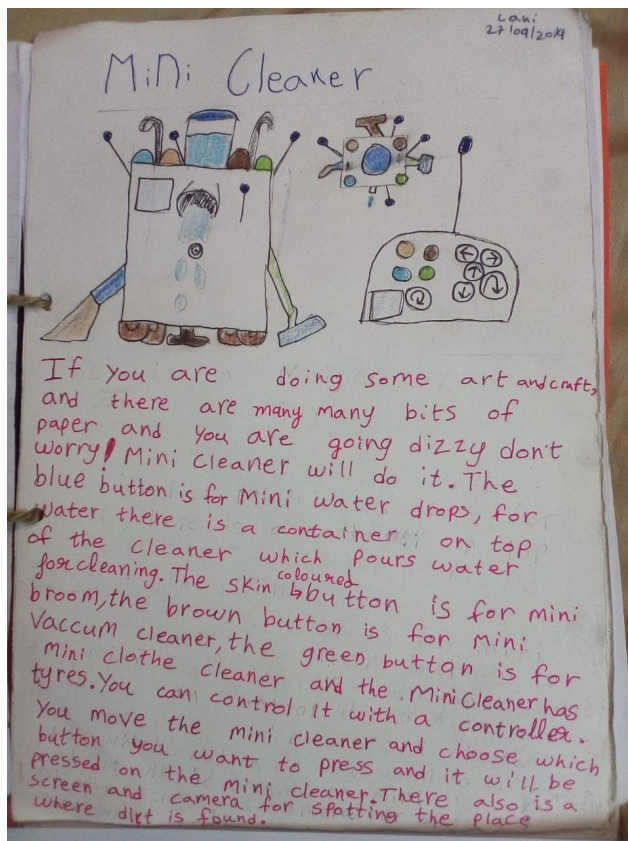 Lani
27/09/2019
Mini Cleaner
If you are doing some art and craft,
and there are many many bits of
paper and you are going dizzy don't
worry! Mini cleaner will do it. The
blue button is for Mini water drops, for
water there is a container on top
of the cleaner which pours water
for cleaning. The skin coloured button is for mini
broom, the brown button is for mini
vaccum cleaner, the green button is for
mini clothe cleaner and the Mini Cleaner has
tyres. You can control it with a controller.
You move the mini cleaner and choose which
button you want to press and it will be
pressed on the mini cleaner. There also is a
screen and camera for spotting the place
where dirt is found.